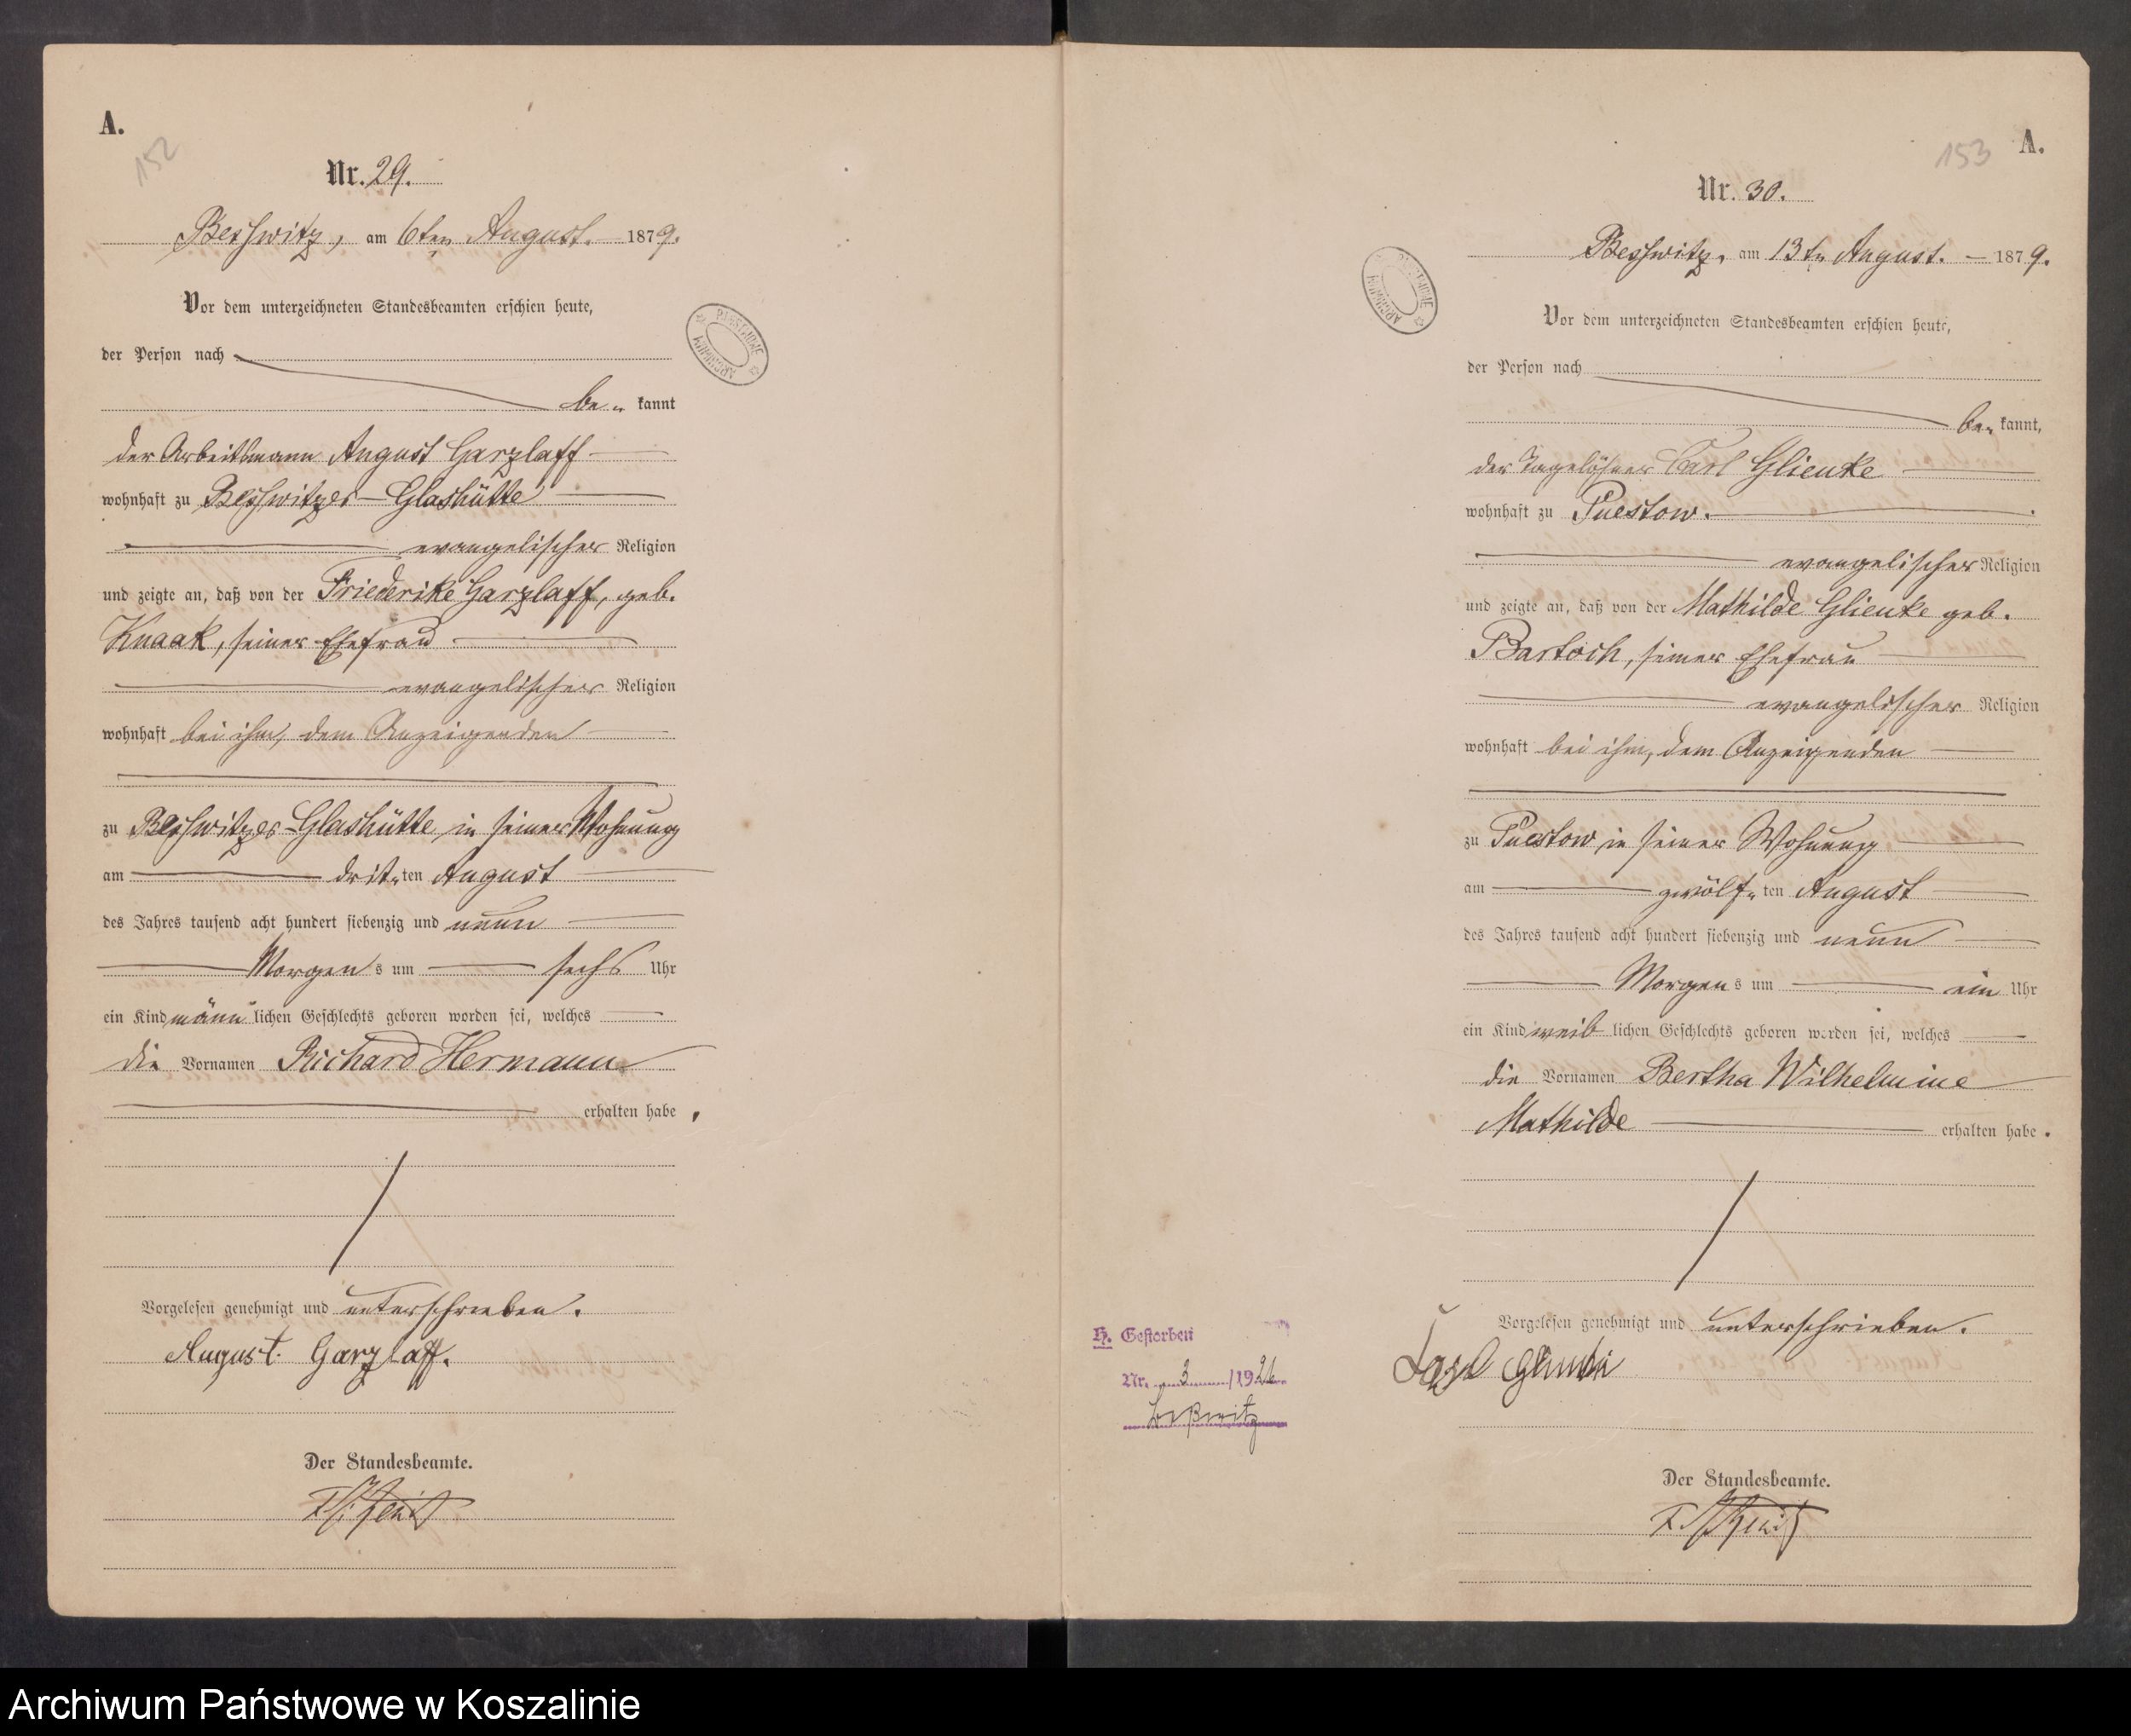 A.
152
Nr. 29.
Besswitz, am 6ten August. 1879.
Vor dem unterzeichneten Standesbeamten erschien heute,
der Person nach
be- kannt
der Arbeitsmann August Garzlaff
wohnhaft zu Besswitzer-Glashütte
evangelischer Religion
und zeigte an, daß von der Friederike Garzlaff, geb.
Knaak, seiner Ehefrau
evangelischer Religion
wohnhaft bei ihm, dem Anzeigenden
zu Besswitzer-Glashütte in seiner Wohnung
am drit-ten August
des Jahres tausend acht hundert siebenzig und neun
Morgens um sechs Uhr
ein Kind männlichen Geschlechts geboren worden sei, welches
die Vornamen Richard Hermann
erhalten habe.
Vorgelesen genehmigt und unterschrieben.
August Garzlaff.
Der Standesbeamte.
ARCHIWUM PAŃSTWOWE
153 A.
Nr. 30.
Besswitz, am 13ten August. 1879.
Vor dem unterzeichneten Standesbeamten erschien heute,
der Person nach
be- kannt,
der Tagelöhner Carl Glienke
wohnhaft zu Puestow.
evangelischer Religion
und zeigte an, daß von der Mathilde Glienke geb.
Bartoch, seiner Ehefrau
evangelischer Religion
wohnhaft bei ihm, dem Anzeigenden
zu Puestow in seiner Wohnung
am zwölf-ten August
des Jahres tausend acht hundert siebenzig und neun
Morgens um ein Uhr
ein Kind weiblichen Geschlechts geboren worden sei, welches
die Vornamen Bertha Wilhelmine
Mathilde erhalten habe.
Vorgelesen genehmigt und unterschrieben.
Carl
Der Standesbeamte.
ARCHIWUM PAŃSTWOWE
H. Gestorben
Nr. 3 /1926
Beßwitz
Archiwum Państwowe w Koszalinie